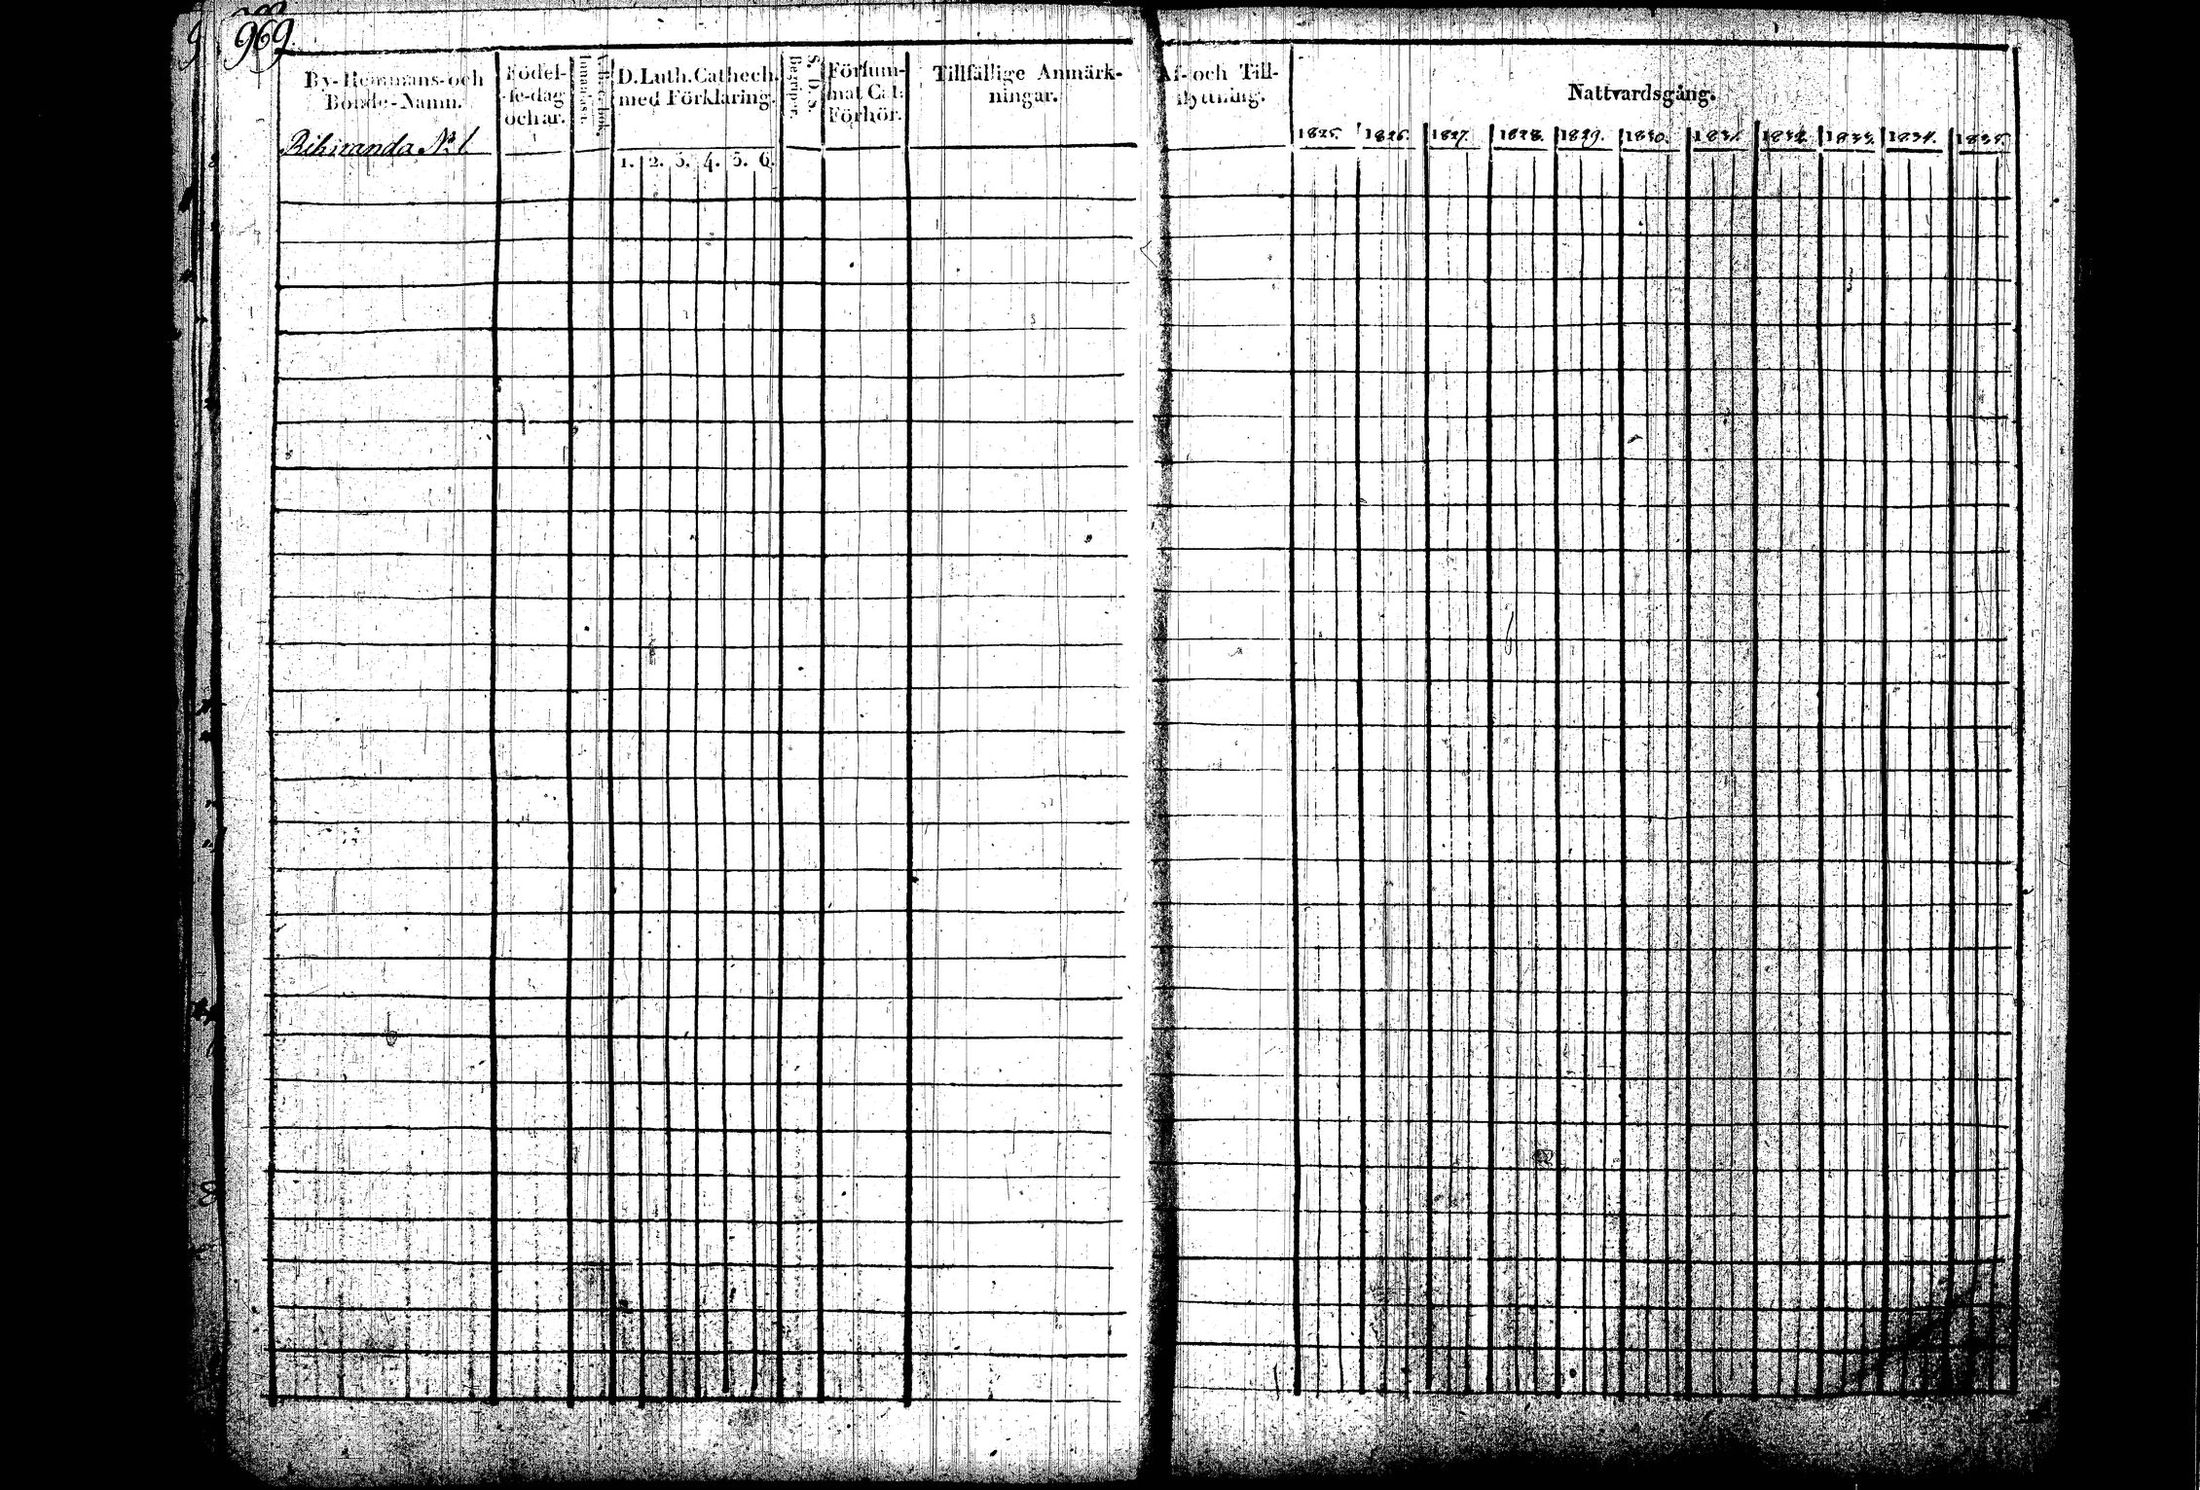 969
By-Hemmans-och
Bonde-Namn.
Födel-
se-dag
och år.
D. Luth. Cathech.
med Förklaring.
1. 2. 3. 4. 5. 6.
S. D. S.
Begriper.
Försum-
mat Cat:
Förhör.
Tillfällige Anmärk-
ningar.
Af- och Till-
flyttning.
Nattvardsgång.
1825. 1826. 1827. 1828. 1829. 1830. 1831. 1832. 1833. 1834. 1835.
Rihiranda No 1